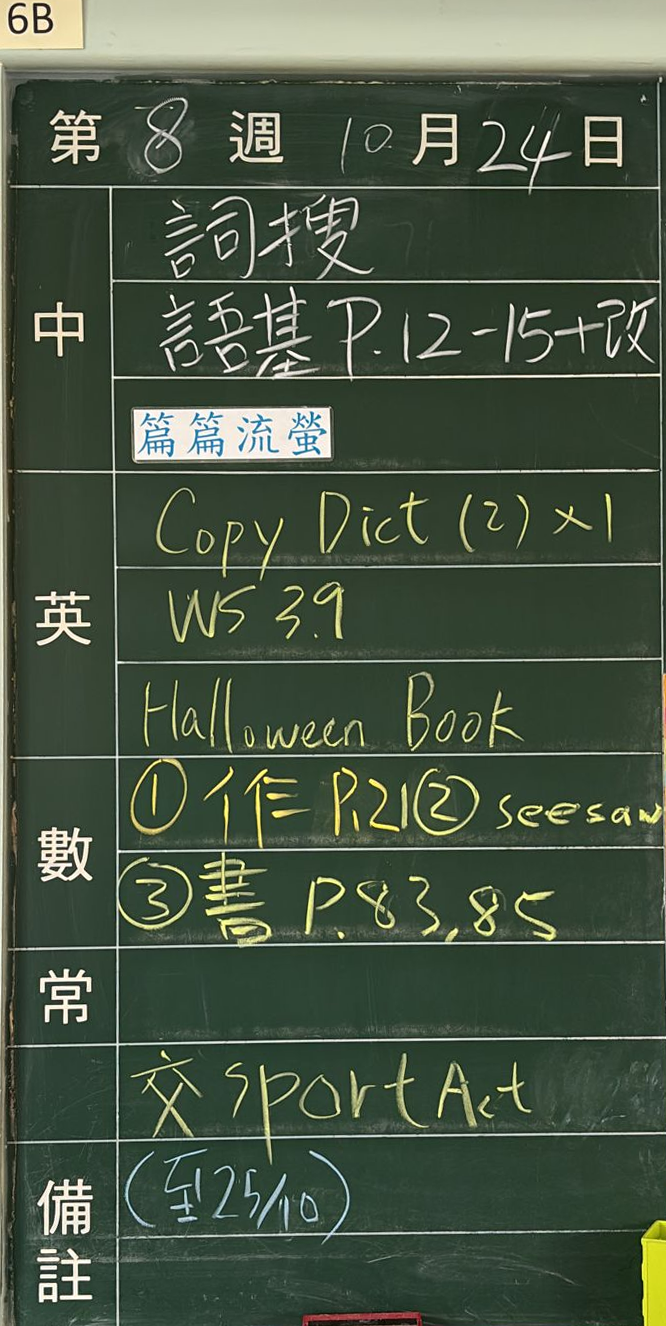 6B
第 8 週 10 月 24 日
中
詞搜
語基 P.12-15+改
篇篇流螢
英
Copy Dict (2) ×1
WS 3.9
Halloween Book
數
① 作 P.21 ② seesaw
③ 書 P.83,85
常
交 Sport Act
備註
(至25/10)